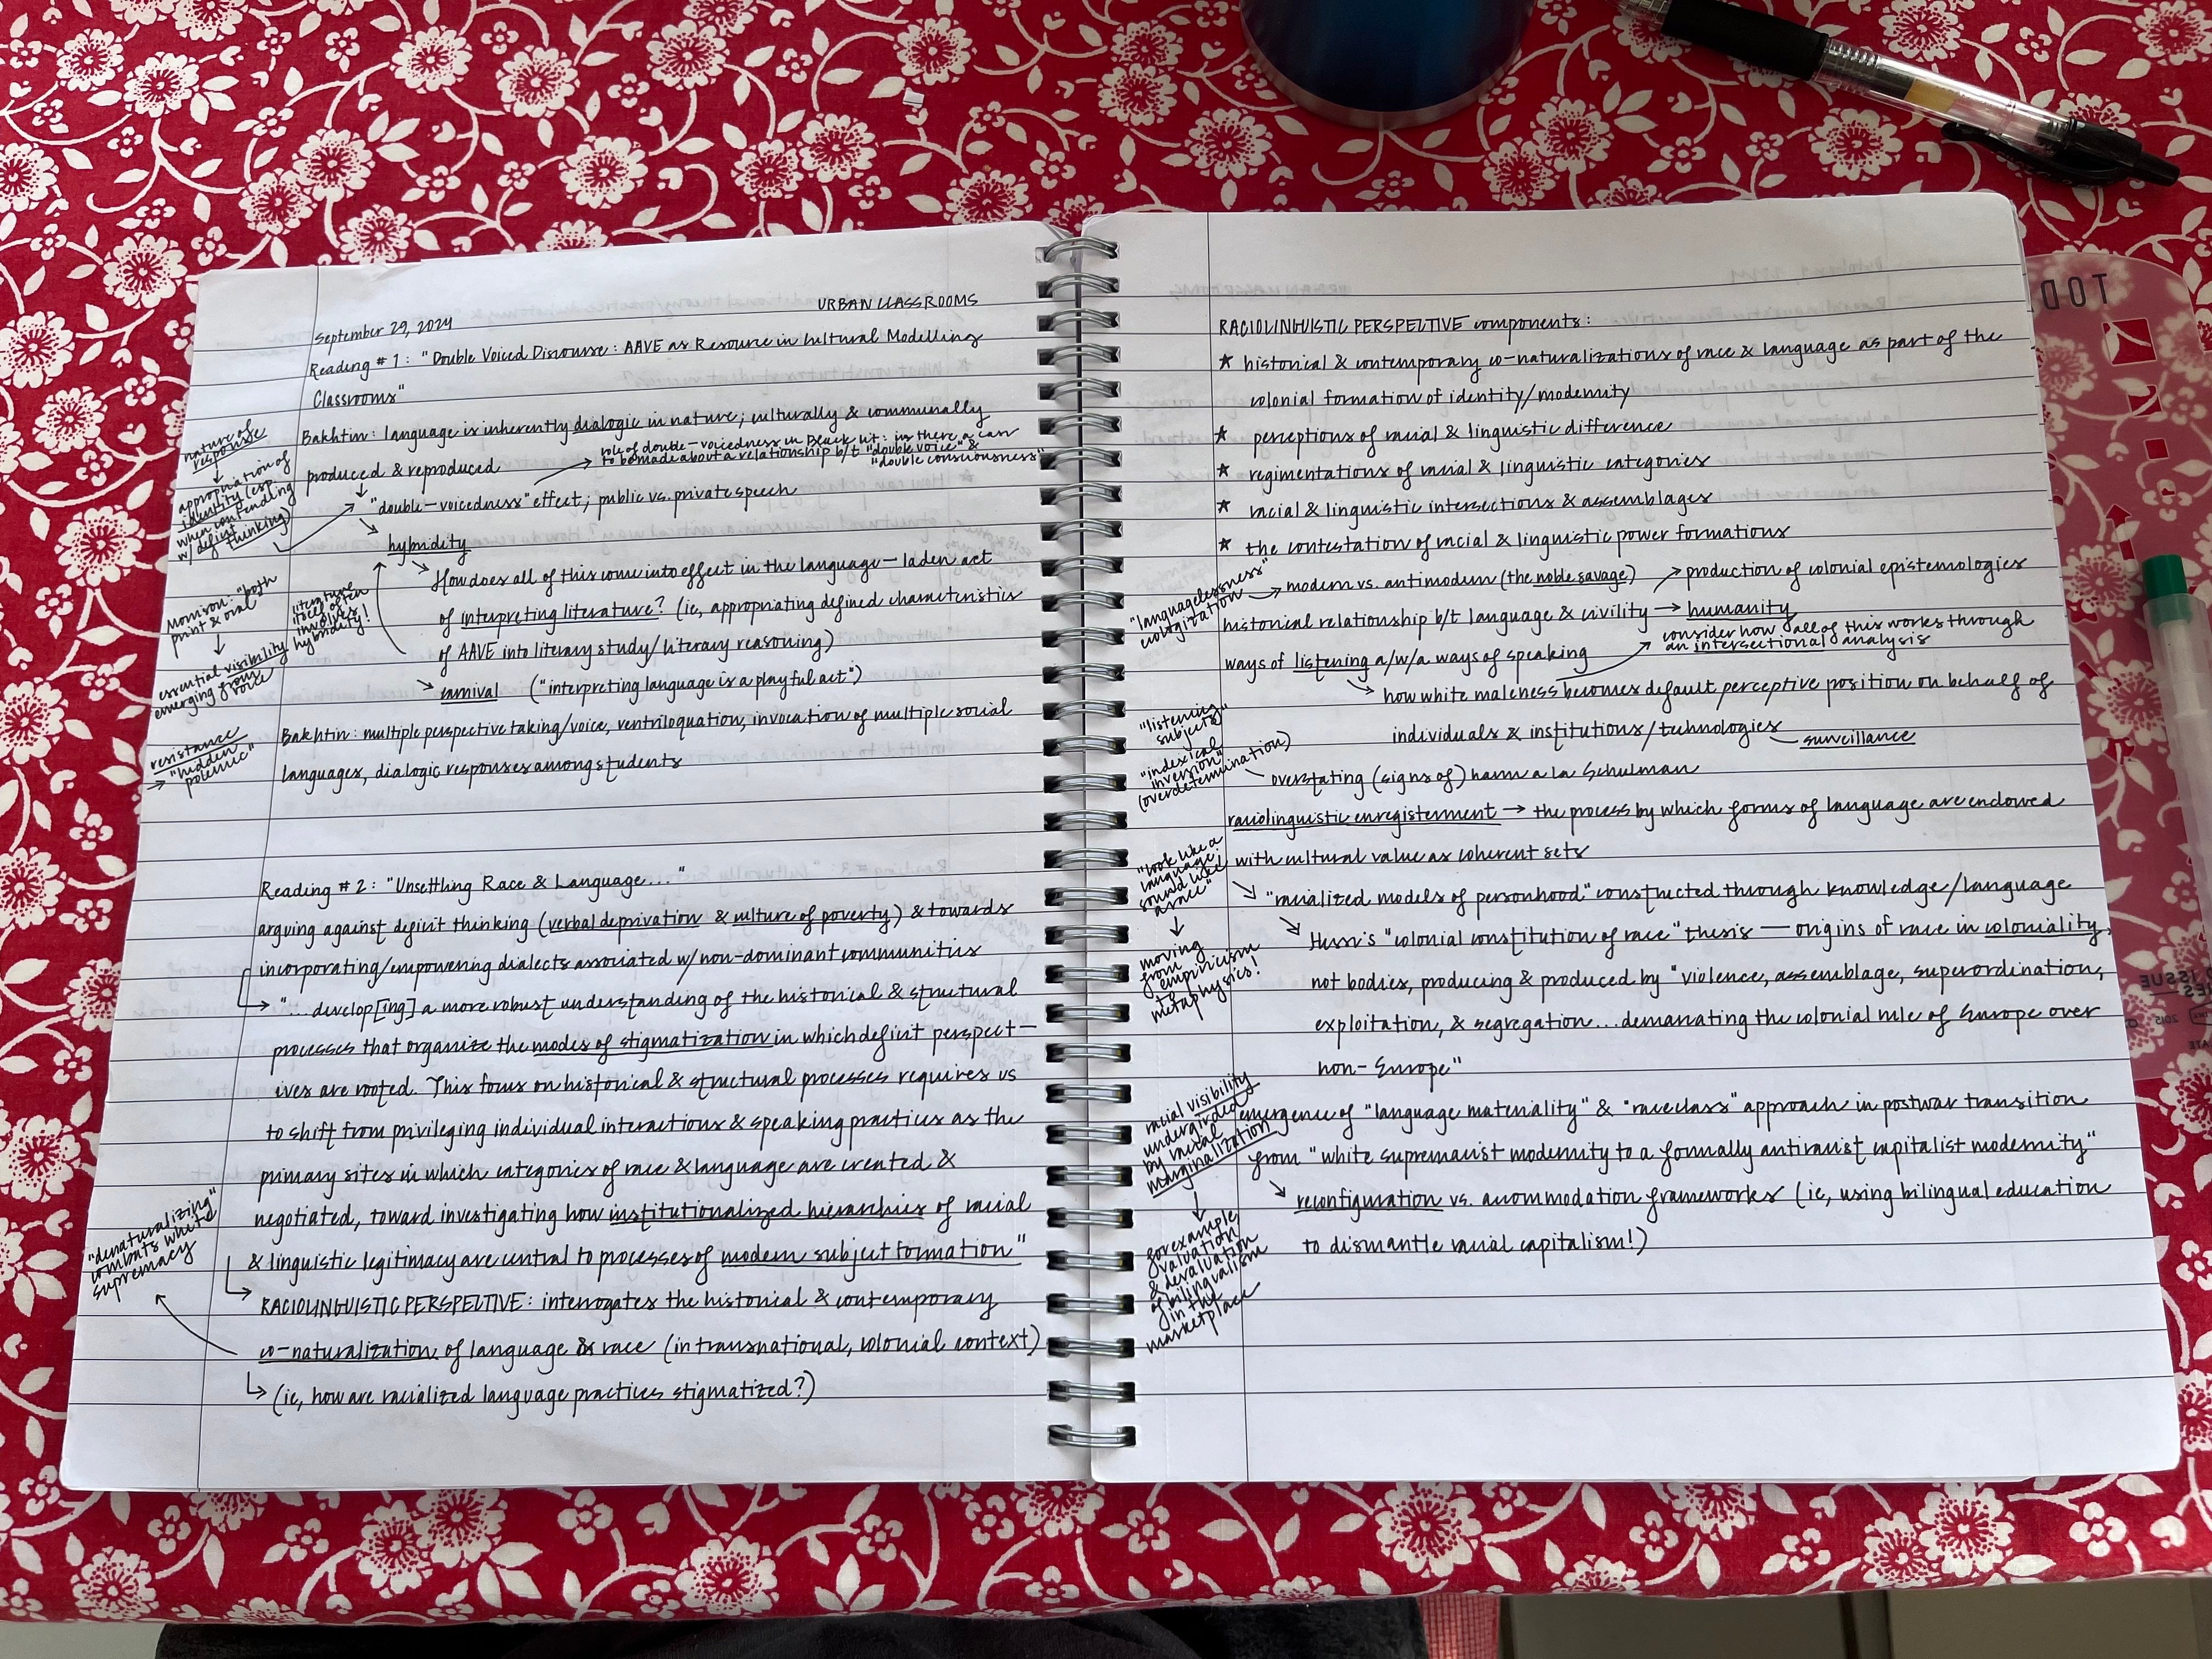 URBAN CLASSROOMS
September 29, 2024
Reading #1: "Double Voiced Discourse: AAVE as Resource in Cultural Modelling
Classrooms"
Bakhtin: language is inherently dialogic in nature; culturally & communally
produced & reproduced
role of double-voicedness in Black lit: is there a case
to be made about a relationship b/t "double voice" &
"double consciousness"
"double-voicedness" effect; public vs. private speech
hybridity
How does all of this come into effect in the language-laden act
of interpreting literature? (ie, appropriating defined characteristics
of AAVE into literary study/literary reasoning)
carnival ("interpreting language is a playful act")
Bakhtin: multiple perspective taking/voice, ventriloquation, invocation of multiple social
languages, dialogic responses among students
nature of
response
↓
appropriation of
identity (esp
when contending
w/ deficit
thinking)
Morrison: "both
print & oral"
↓
essential visibility
emerging from
voice
literature
itself often
involves
hybridity!
resistance
→ "hidden
polemic"
Reading #2: "Unsettling Race & Language..."
arguing against deficit thinking (verbal deprivation & culture of poverty) & towards
incorporating/empowering dialects associated w/ non-dominant communities
→ "...develop[ing] a more robust understanding of the historical & structural
processes that organize the modes of stigmatization in which deficit perspect-
ives are rooted. This focus on historical & structural processes requires us
to shift from privileging individual interactions & speaking practices as the
primary sites in which categories of race & language are created &
negotiated, toward investigating how institutionalized hierarchies of racial
& linguistic legitimacy are central to processes of modern subject formation"
RACIOLINGUISTIC PERSPECTIVE: interrogates the historical & contemporary
co-naturalization of language & race (in transnational, colonial context)
(ie, how are racialized language practices stigmatized?)
"denaturalizing"
combats white
supremacy
RACIOLINGUISTIC PERSPECTIVE components:
★ historical & contemporary co-naturalizations of race & language as part of the
colonial formation of identity/modernity
★ perceptions of racial & linguistic difference
★ regimentations of racial & linguistic categories
★ racial & linguistic intersections & assemblages
★ the contestation of racial & linguistic power formations
"languagelessness"
→ modern vs. antimodern (the noble savage)
→ production of colonial epistemologies
historical relationship b/t language & civility → humanity
consider how all of this works through
an intersectional analysis
ways of listening a/w/a ways of speaking
how white maleness becomes default perceptive position on behalf of
individuals & institutions/technologies
surveillance
"listening
subjects"
"indexical
inversion"
(overdetermination)
overstating (signs of) harm a la Schulman
raciolinguistic enregisterment → the process by which forms of language are endowed
with cultural value as coherent sets
"racialized models of personhood" constructed through knowledge/language
Hesse's "colonial constitution of race" thesis — origins of race in coloniality,
not bodies, producing & produced by "violence, assemblage, superordination,
exploitation, & segregation...demarcating the colonial rule of Europe over
non-Europe"
"look like a
language,
sound like
a race"
↓
moving
from
empiricism
to
metaphysics!
emergence of "language materiality" & "raceclass" approach in postwar transition
from "white supremacist modernity to a formally antiracist capitalist modernity"
reconfiguration vs. accommodation frameworks (ie, using bilingual education
to dismantle racial capitalism!)
racial visibility
undergirded
by racial
marginalization
↓
for example,
valuation
& devaluation
of bilingualism
in the
marketplace
TODD
ISSUE
2015